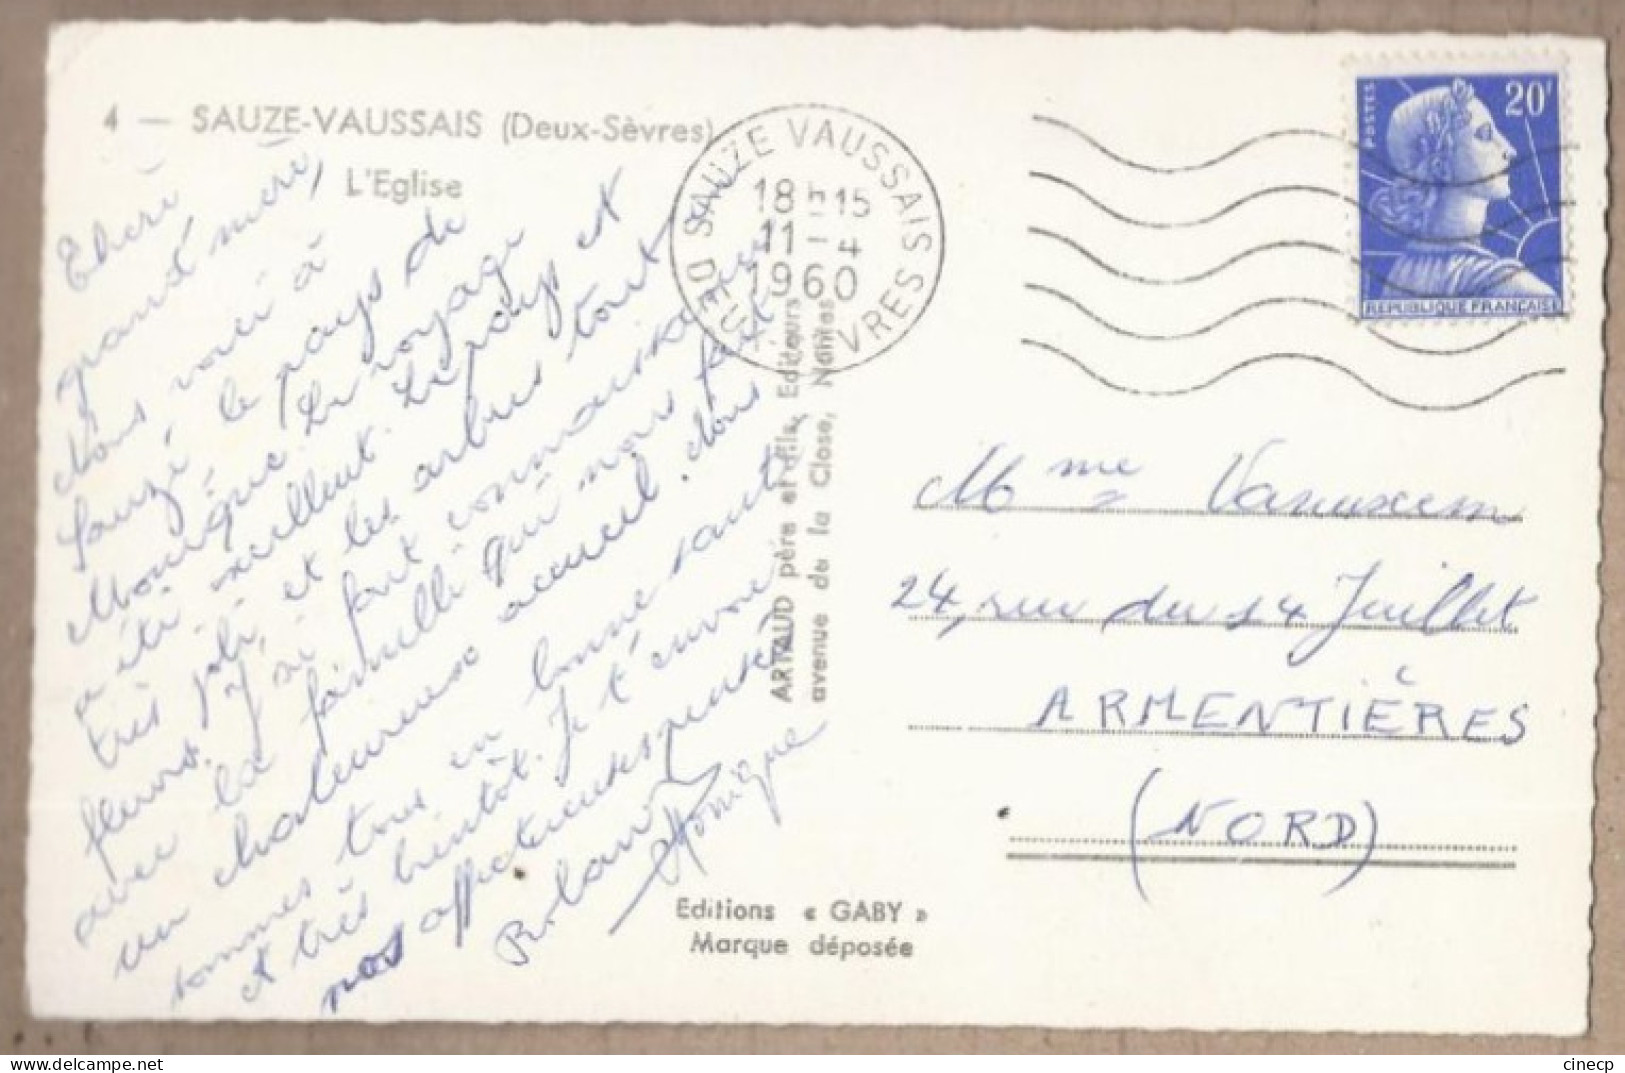 4 — SAUZE-VAUSSAIS (Deux-Sèvres)
L'Eglise
Chère
grand'mère,
Nous voici à
Sauzé, le pays de
Monique. Le voyage
a été excellent. Le pays est
très joli, et les arbres tout
fleuris. J'ai fait connaissance
avec la famille qui nous fait
un chaleureux accueil. Nous
sommes tous en bonne santé
et très bientôt. Je t'envoie
nos affectueuses pensées
Roland
Monique
SAUZE VAUSSAIS
18 H 15
11 - 4
1960
DEUX SEVRES
ARTAUD père et fils, Editeurs
avenue de la Close, Nantes
Editions « GABY »
Marque déposée
POSTES
20F
REPUBLIQUE FRANÇAISE
Mme Vanuxem
24, rue du 14 Juillet
ARMENTIÈRES
(NORD)
cinecp